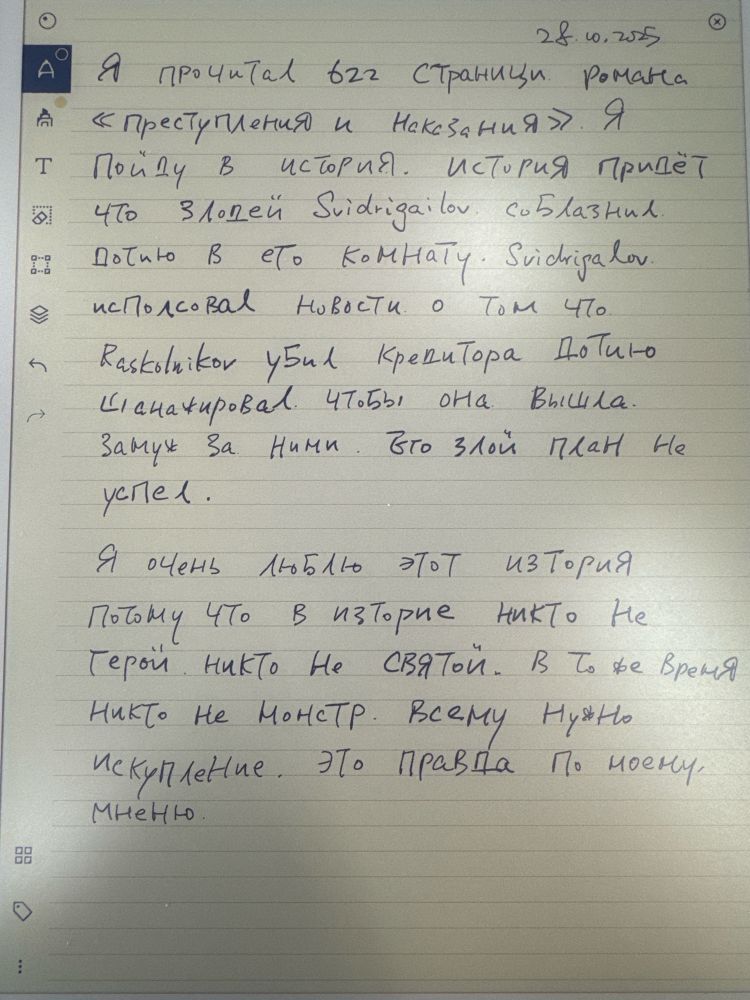 28.10.2025
Я прочитал 622 страници романа
«преступления и наказания». Я
пойду в история. история придёт
что злодей Svidrigailov. соблазнил
Дотию в его комнату. Svidrigalov.
исполсовал новости о том что
Raskolnikov убил кредитора Дотию
шанажировал чтобы она вышла.
замуж за ними. Его злой план не
успел.
Я очень люблю этот изтория
потому что в изторие никто не
герой. никто не святой. В то же время
никто не монстр. Всему нужно
искупление. это правда по моему.
мненю.
T